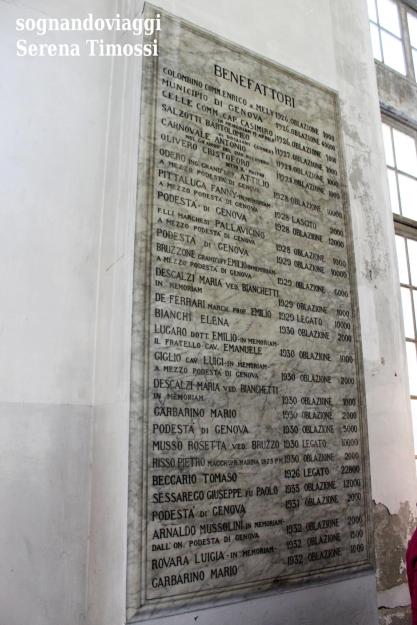 sognandoviaggi
Serena Timossi
BENEFATTORI
COLOMBINO COMM. ENRICO E MELY 1926 OBLAZIONE 1000
MUNICIPIO DI GENOVA 1926 OBLAZIONE
CELLE COMM. CAP. CASIMIRO 1926 OBLAZIONE 1000
SALZOTTI BARTOLOMEO 1927 OBLAZIONE
CARNOVALE ANTONIO 1928 OBLAZIONE
OLIVERO CRISTOFORO 1928 OBLAZIONE 1000
ODERO ING. GRAND'UFF. ATTILIO
A MEZZO PODESTÀ DI GENOVA 1928 LASCITO
PITTALUGA FANNY-IN MEMORIAM-
A MEZZO PODESTÀ DI GENOVA 1928 OBLAZIONE 2000
PODESTÀ - DI GENOVA 12000
F.LLI MARCHESI PALLAVICINO 1928 OBLAZIONE
A MEZZO PODESTÀ DI GENOVA
PODESTÀ DI GENOVA 1929 OBLAZIONE 10000
BRUZZONE GRAND'UFF. EMILIO-IN MEMORIAM-
A MEZZO PODESTÀ DI GENOVA 1929 OBLAZIONE 5000
DESCALZI MARIA VED. BIANCHETTI
IN MEMORIAM 1929 OBLAZIONE 1000
DE FERRARI MARCH. PROF. EMILIO 1929 LEGATO 10000
BIANCHI ELENA 1930 OBLAZIONE 2000
LUGARO DOTT. EMILIO-IN MEMORIAM-
IL FRATELLO CAV. EMANUELE 1930 OBLAZIONE 1000
GIGLIO CAV. LUIGI-IN MEMORIAM-
A MEZZO PODESTÀ DI GENOVA 1930 OBLAZIONE 2000
DESCALZI MARIA VED. BIANCHETTI
IN MEMORIAM 1930 OBLAZIONE 1000
GARBARINO MARIO 1930 OBLAZIONE 2000
PODESTÀ DI GENOVA 1930 OBLAZIONE 5000
MUSSO ROSETTA VED. BRUZZO 1930 LEGATO 10000
RISSO PIETRO MACCH. R. MARINA 1930 OBLAZIONE 2000
BECCARIO TOMASO 1926 LEGATO 22800
SESSAREGO GIUSEPPE FU PAOLO 1933 OBLAZIONE 12000
PODESTÀ DI GENOVA 1931 OBLAZIONE 2000
ARNALDO MUSSOLINI IN MEMORIAM-
DALL'ON. PODESTÀ DI GENOVA 1932 OBLAZIONE 2000
ROVARA LUIGIA-IN MEMORIAM- 1932 OBLAZIONE 1500
GARBARINO MARIO 1932 OBLAZIONE 1000